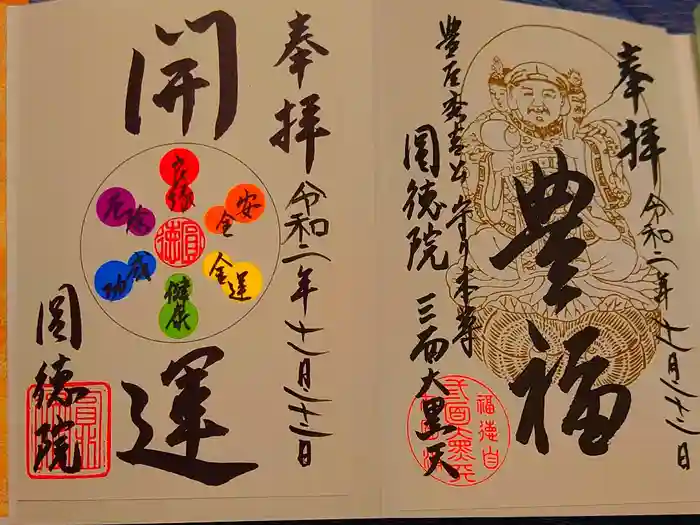 奉拝
令和二年十一月二十二日
開運
良縁
安全
金運
健康
成功
厄除
圓徳
圓徳院
奉拝
令和二年十一月二十二日
豊福
豊臣秀吉公守り本尊
圓徳院 三面大黒天